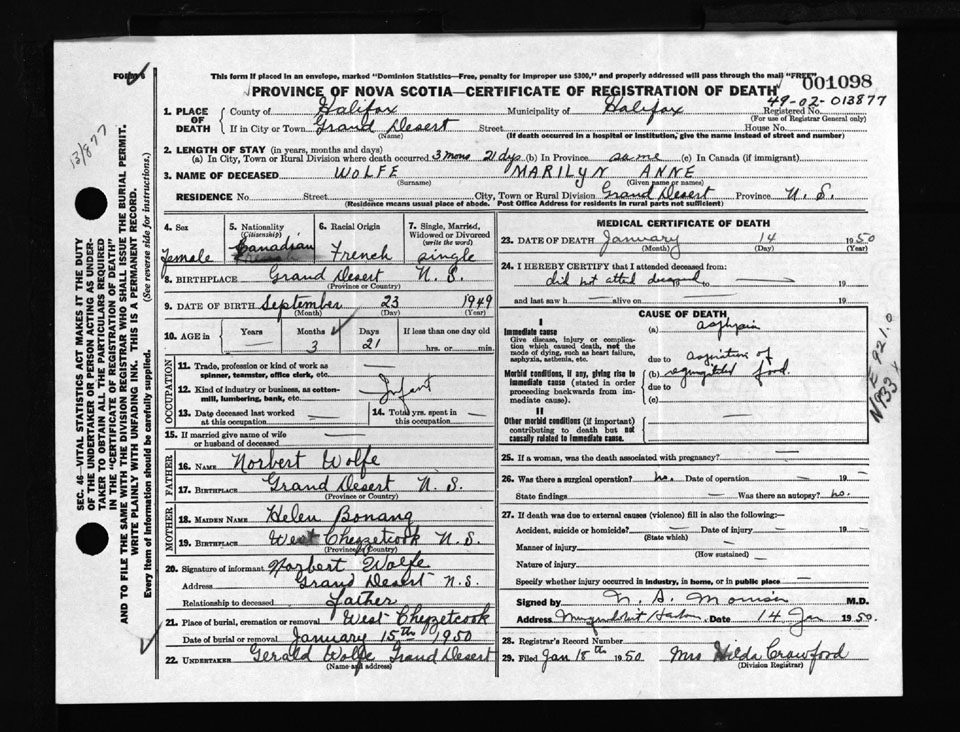 FORM 6
This form if placed in an envelope, marked "Dominion Statistics—Free, penalty for improper use $300," and properly addressed will pass through the mail "FREE"
001098
PROVINCE OF NOVA SCOTIA—CERTIFICATE OF REGISTRATION OF DEATH
49-02-013877
13/877
1. PLACE OF DEATH
County of Halifax Municipality of Halifax Registered No.
(For use of Registrar General only)
If in City or Town Grand Desert Street House No.
(Name) (If death occurred in a hospital or institution, give the name instead of street and number)
2. LENGTH OF STAY (in years, months and days)
(a) In City, Town or Rural Division where death occurred 3 mons 21 dys (b) In Province same (c) In Canada (if immigrant)
3. NAME OF DECEASED WOLFE MARILYN ANNE
(Surname) (Given name or names)
RESIDENCE No. Street City, Town or Rural Division Grand Desert Province N. S.
(Residence means usual place of abode. Post Office Address for residents in rural parts not sufficient)
4. Sex
female
5. Nationality
(Citizenship)
Canadian
6. Racial Origin
French
7. Single, Married, Widowed or Divorced
(write the word)
single
8. BIRTHPLACE Grand Desert N. S.
(Province or Country)
9. DATE OF BIRTH September 23 1949
(Month) (Day) (Year)
10. AGE in Years — Months 3 Days 21 If less than one day old
hrs. or min.
OCCUPATION
11. Trade, profession or kind of work as spinner, teamster, office clerk, etc. —
12. Kind of industry or business, as cotton-mill, lumbering, bank, etc. Infant
13. Date deceased last worked at this occupation —
14. Total yrs. spent in this occupation —
15. If married give name of wife or husband of deceased —
FATHER
16. NAME Norbert Wolfe
17. BIRTHPLACE Grand Desert N. S.
(Province or Country)
MOTHER
18. MAIDEN NAME Helen Bonang
19. BIRTHPLACE West Chezzetcook N. S.
(Province or Country)
20. Signature of informant Norbert Wolfe
Address Grand Desert N. S.
Relationship to deceased Father
21. Place of burial, cremation or removal West Chezzetcook
Date of burial or removal January 15th 1950
22. UNDERTAKER Gerald Wolfe Grand Desert
(Name and address)
MEDICAL CERTIFICATE OF DEATH
23. DATE OF DEATH January 14 1950
(Month) (Day) (Year)
24. I HEREBY CERTIFY that I attended deceased from:
did not attend deceased to — 19
and last saw h — alive on — 19
CAUSE OF DEATH
I
Immediate cause
Give disease, injury or complication which caused death, not the mode of dying, such as heart failure, asphyxia, asthenia, etc.
(a) asphyxia
due to aspiration of
Morbid conditions, if any, giving rise to immediate cause (stated in order proceeding backwards from immediate cause).
(b) regurgitated food.
due to
(c)
II
Other morbid conditions (if important) contributing to death but not causally related to immediate cause.
E 921.0
N933
25. If a woman, was the death associated with pregnancy? —
26. Was there a surgical operation? no. Date of operation — 19 —
State findings — Was there an autopsy? no.
27. If death was due to external causes (violence) fill in also the following:—
Accident, suicide or homicide? — Date of injury — 19 —
(State which)
Manner of injury —
(How sustained)
Nature of injury —
Specify whether injury occurred in industry, in home, or in public place —
Signed by M.D.
Address Date 14 Jan 1950.
28. Registrar's Record Number
29. Filed Jan 18th 1950 Mrs Hilda Crawford
(Division Registrar)
SEC. 46—VITAL STATISTICS ACT MAKES IT THE DUTY
OF THE UNDERTAKER OR PERSON ACTING AS UNDER-
TAKER TO OBTAIN ALL THE PARTICULARS REQUIRED
IN THE "CERTIFICATE OF REGISTRATION OF DEATH"
AND TO FILE THE SAME WITH THE DIVISION REGISTRAR WHO SHALL ISSUE THE BURIAL PERMIT.
WRITE PLAINLY WITH UNFADING INK. THIS IS A PERMANENT RECORD.
Every item of information should be carefully supplied. (See reverse side for instructions.)